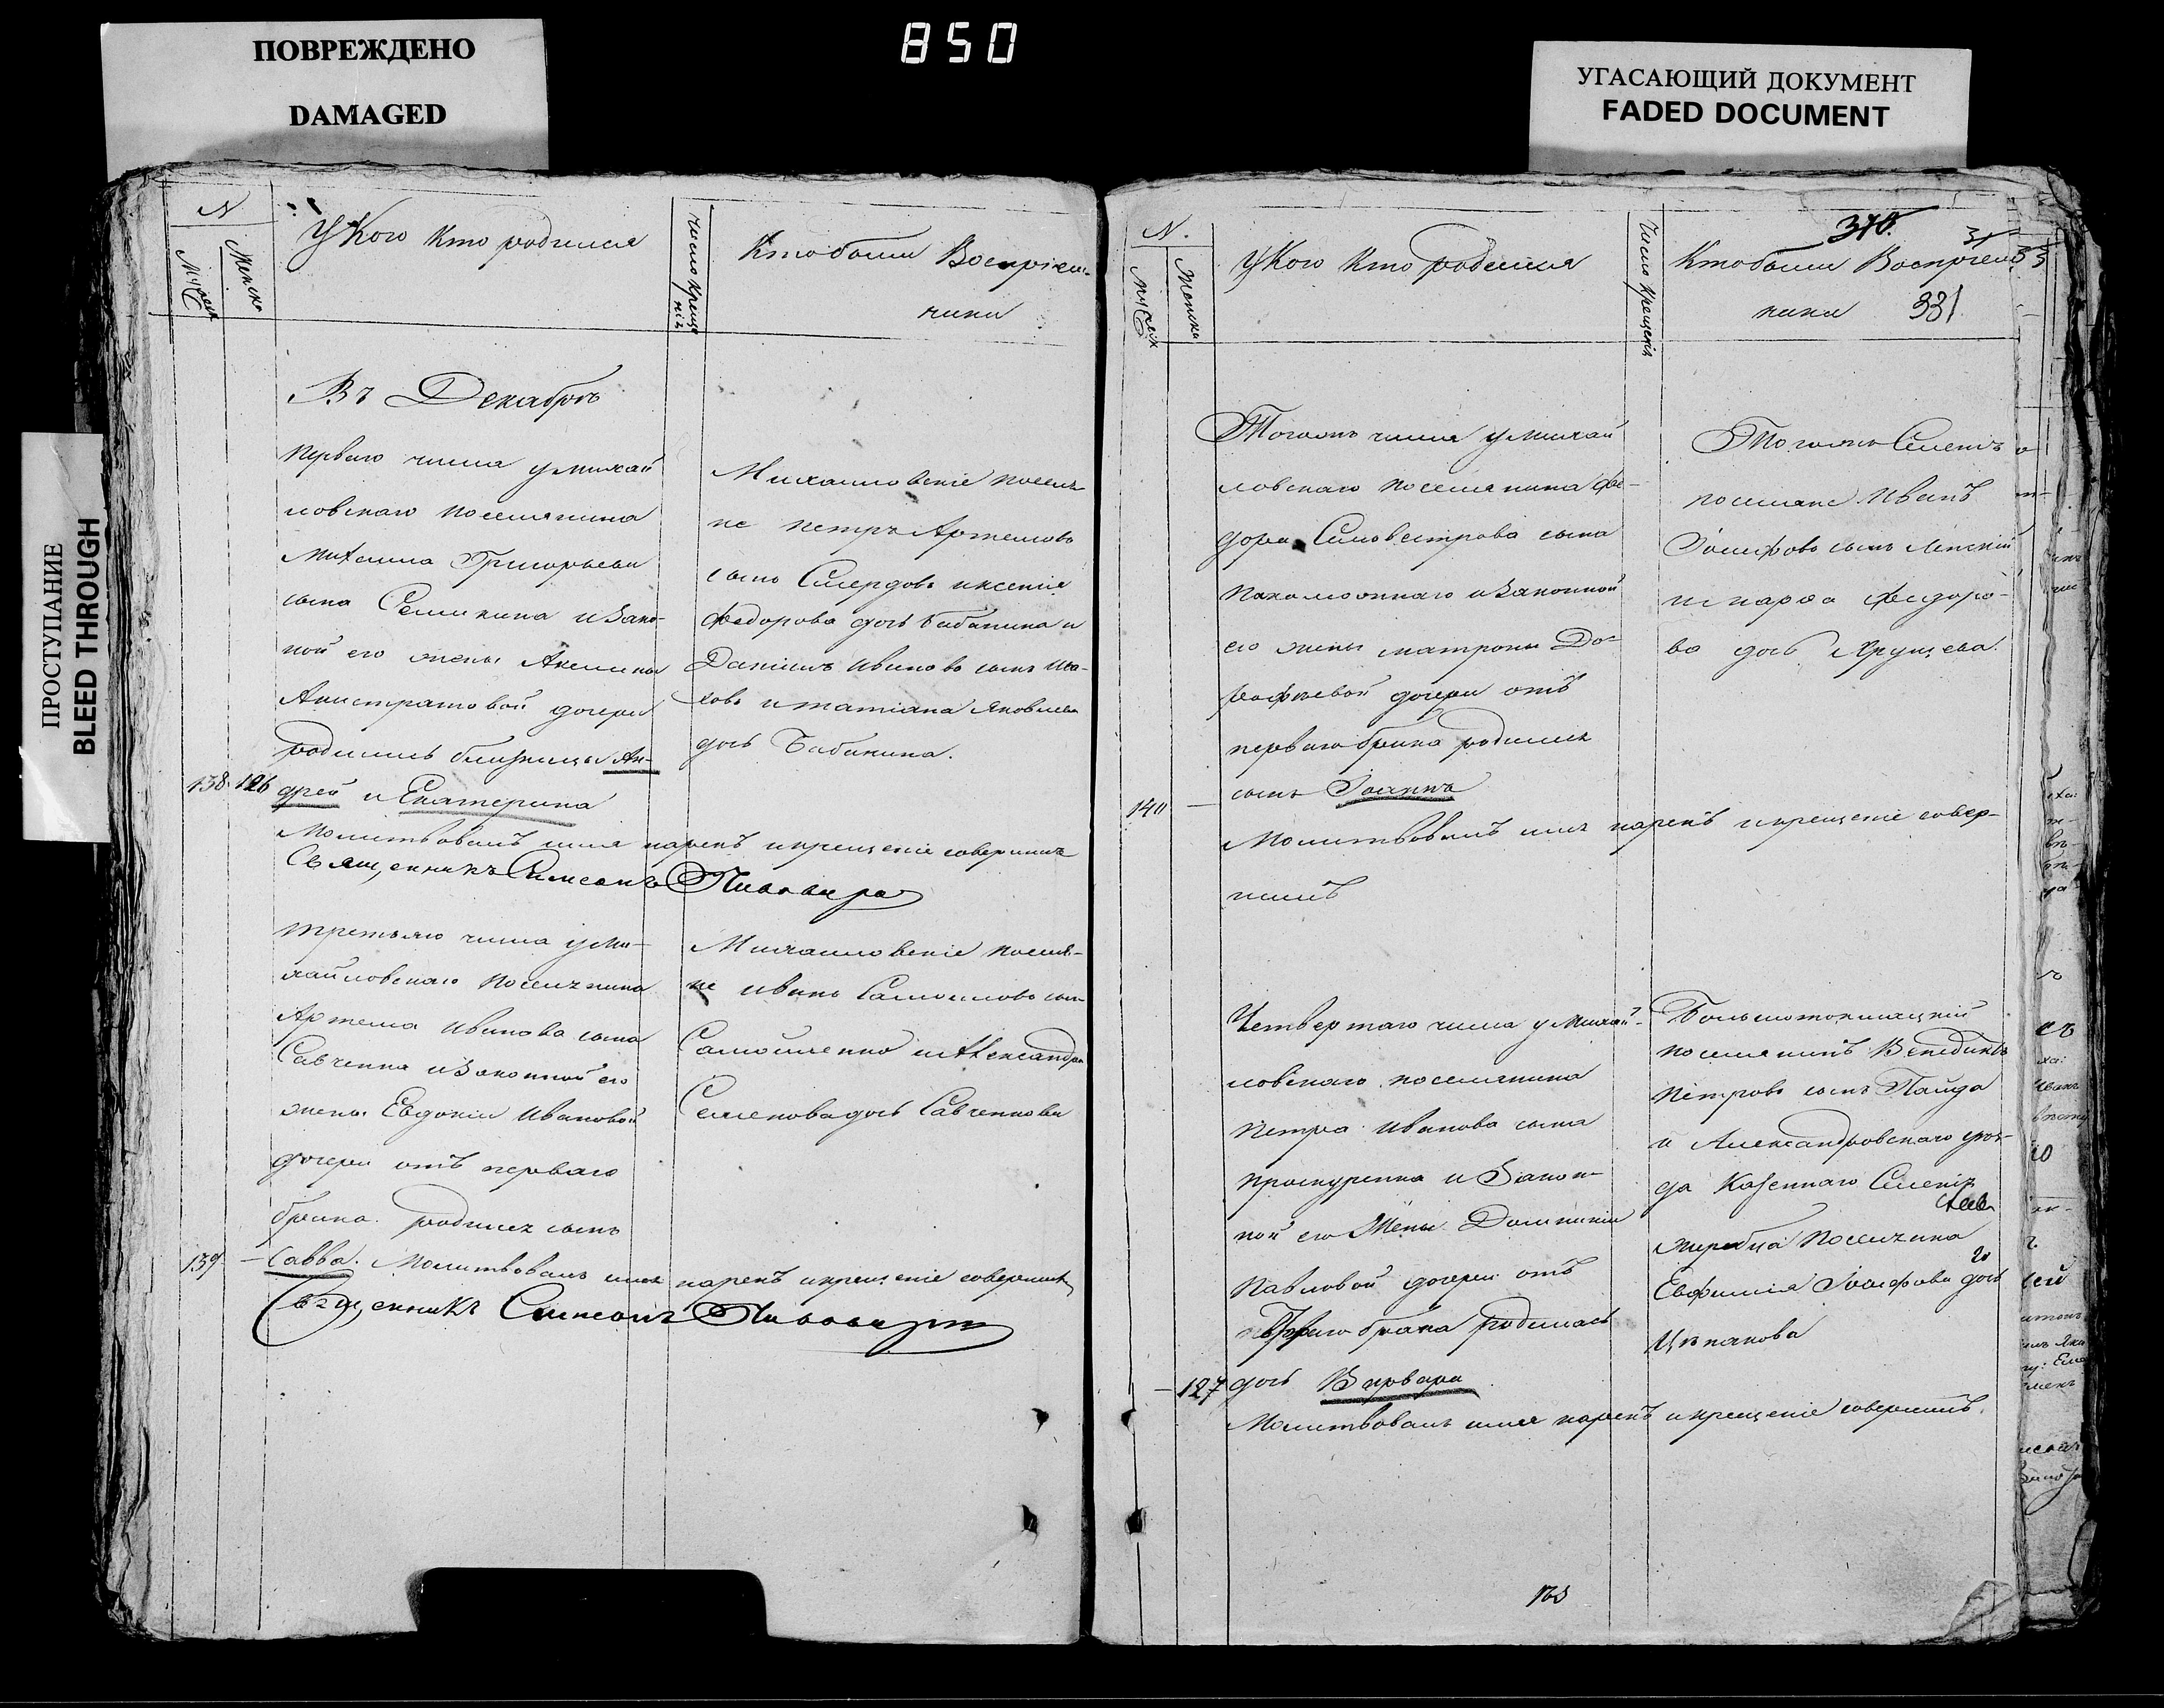 ПОВРЕЖДЕНО
DAMAGED
850
УГАСАЮЩИЙ ДОКУМЕНТ
FADED DOCUMENT
ПРОСТУПАНИЕ
BLEED THROUGH
N
Мужеск
Женско
У Кого Кто родился
Число Креще
нія
Кто были Воспріем-
ники
Въ Декабрѣ
Перваго числа у михай
ловскаго поселянина
Михаила Григорьева
сына Семикина и Закон-
ной его жены Акилины
Анистратовой дочери
родились близнецы Ан-
138 126 дрей и Екатерина
Михаиловскіе поселя-
не петръ Артемовъ
сынъ Смердовъ и ксенія
Федорова дочь бабанина и
Даніилъ Ивановъ сынъ
ховъ и татіана Яковлева
дочь Бабанина.
Молитвовалъ имя нарекъ и крещеніе совершилъ
Священникъ Симеонъ Пивоваръ
третьяго числа у Ми-
хайловскаго Поселянина
Артема Иванова сына
Савченка и Законной его
жены Евдокіи Ивановой
дочери отъ перваго
брака родился сынъ
139 — Савва. Молитвовалъ имя нарекъ и крещеніе совершилъ
Михаиловскіе поселя-
не Иванъ Самоиловъ сын
Самойленко и Александра
Семенова дочь Савченкова
Священникъ Симеонъ Пивоваръ
N.
Мужеск
Женско
У Кого Кто родился
Число Крещенія
310.
31
Кто были Воспріем
ники 331
Тогожъ числа у михай
ловскаго поселянина Фе-
дора Силовестрова сына
и Законной
его жены матроны До-
рофѣевой дочери отъ
перваго брака родился
140 — сынъ Іоаннъ
Тогожъ Селенія
поселяне Иванъ
Іосифовъ сынъ Ленскій
и марѳа Федоро-
ва дочь Хрущева.
Молитвовалъ имя нарекъ и крещеніе совер-
шилъ
Четвертаго числа у Михай-
ловскаго поселянина
Петра Иванова сына
проскуренка и Закон-
ной его Жены Домникіи
Павловой дочери отъ
перваго брака родилась
— 127 дочь Варвара
Большотокмацкій
поселянинъ Венедиктъ
Петровъ сынъ Пайда
и Александровскаго уѣз-
да Казеннаго Селенія
жеребца Поселянина
Евфимія Іосифова дочь
Цѣпкова
Молитвовалъ имя нарекъ и крещеніе совершилъ